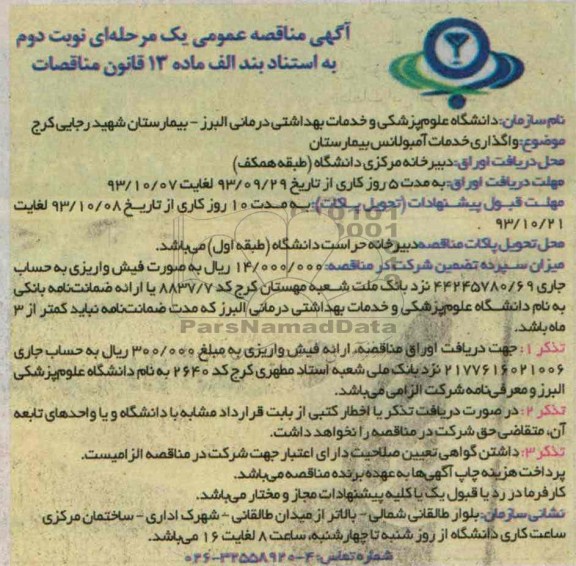 آگهی مناقصه عمومی یک مرحله‌ای نوبت دوم
به استناد بند الف ماده ۱۳ قانون مناقصات
نام سازمان: دانشگاه علوم پزشکی و خدمات بهداشتی درمانی البرز - بیمارستان شهید رجایی کرج
موضوع: واگذاری خدمات آمبولانس بیمارستان
محل دریافت اوراق: دبیرخانه مرکزی دانشگاه (طبقه همکف)
مهلت دریافت اوراق: به مدت ۵ روز کاری از تاریخ ۹۳/۰۹/۲۹ لغایت ۹۳/۱۰/۰۷
مهلت قبول پیشنهادات (تحویل پاکات): به مدت ۱۰ روز کاری از تاریخ ۹۳/۱۰/۰۸ لغایت
۹۳/۱۰/۲۱ .
محل تحویل پاکات مناقصه: دبیرخانه حراست دانشگاه (طبقه اول) می‌باشد.
میزان سپرده تضمین شرکت در مناقصه: ۱۴/۰۰۰/۰۰۰ ریال به صورت فیش واریزی به حساب
جاری ۴۴۲۴۵۷۸۰/۶۹ نزد بانک ملت شعبه مهستان کرج کد ۸۸۳۷/۷ یا ارائه ضمانت‌نامه بانکی
به نام دانشگاه علوم پزشکی و خدمات بهداشتی درمانی البرز که مدت ضمانت‌نامه نباید کمتر از ۳
ماه باشد.
ParsNamadData
تذکر ۱: جهت دریافت اوراق مناقصه، ارائه فیش واریزی به مبلغ ۳۰۰/۰۰۰ ریال به حساب جاری
۲۱۷۷۶۱۶۰۲۱۰۰۶ نزد بانک ملی شعبه استاد مطهری کرج کد ۲۶۴۰ به نام دانشگاه علوم پزشکی
البرز و معرفی‌نامه شرکت الزامی می‌باشد.
تذکر ۲: در صورت دریافت تذکر یا اخطار کتبی از بابت قرارداد مشابه با دانشگاه و یا واحدهای تابعه
آن، متقاضی حق شرکت در مناقصه را نخواهد داشت.
تذکر ۳: داشتن گواهی تعیین صلاحیت دارای اعتبار جهت شرکت در مناقصه الزامیست.
پرداخت هزینه چاپ آگهی‌ها به عهده برنده مناقصه می‌باشد.
کارفرما در رد یا قبول یک یا کلیه پیشنهادات مجاز و مختار می‌باشد.
نشانی سازمان: بلوار طالقانی شمالی - بالاتر از میدان طالقانی - شهرک اداری - ساختمان مرکزی
ساعت کاری دانشگاه از روز شنبه تا چهارشنبه، ساعت ۸ لغایت ۱۶ می‌باشد.
شماره تماس: ۴-۳۲۵۵۸۹۲۰-۰۲۶